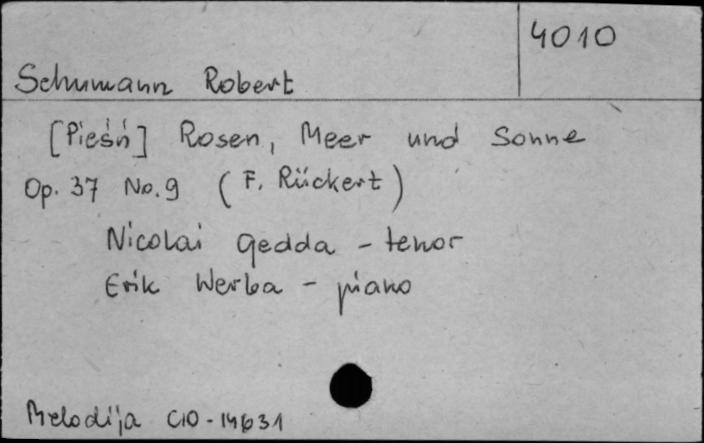 4010
Schumann Robert
[Pieśń] Rosen, Meer und Sonne
Op. 37 No. 9 (F. Rückert)
Nicolai Gedda - tenor
Erik Werba - piano
Melodija C10-14631